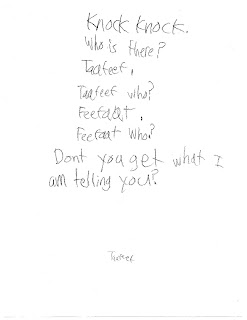 Knock Knock.
Who is there?
Taafeef.
Taafeef who?
Feefaaat.
Feefaat who?
Dont you get what I
am telling you?